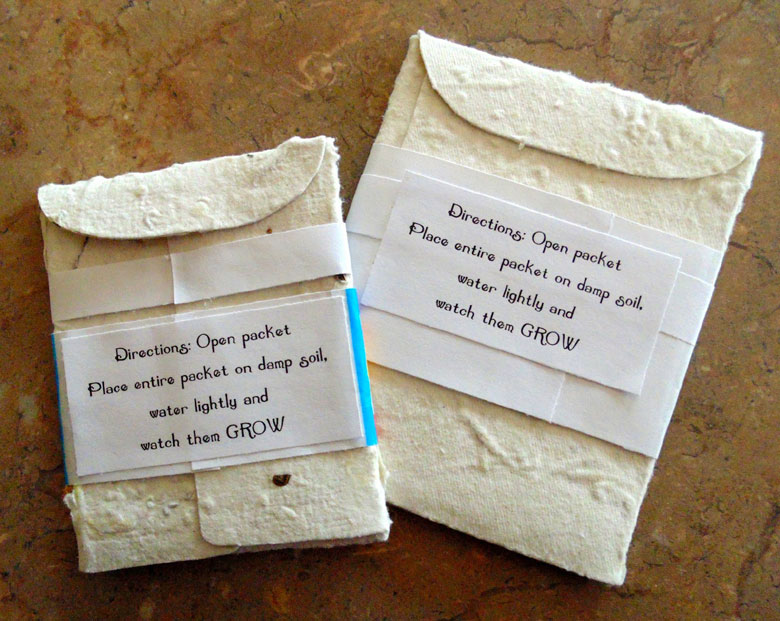 Directions: Open packet
Place entire packet on damp soil,
water lightly and
watch them GROW
Directions: Open packet
Place entire packet on damp soil,
water lightly and
watch them GROW